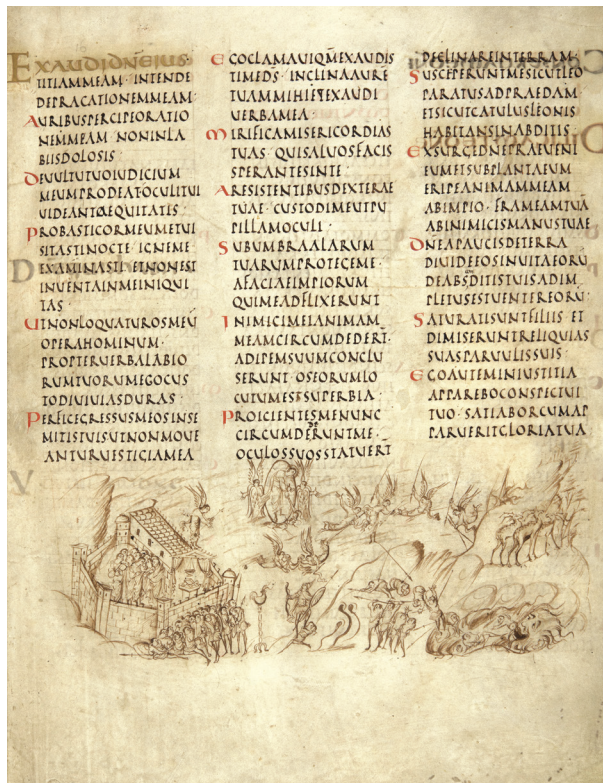 EXAUDIDNEIUS
TITIAMMEAM· INTENDE
DEPRACATIONEMMEAM·
AURIBUSPERCIPEORATIO
NEMMEAM NONINLA
BIISDOLOSIS·
DEVULTUTUOIUDICIUM
MEUMPRODEAT·OCULITUI
UIDEANTAEQUITATIS·
PROBASTICORMEUMETUI
SITASTINOCTE· IGNEME
EXAMINASTI· ETNONEST
INUENTAINMEINIQUI
TAS·
UTNONLOQUATUROSMEU
OPERAHOMINUM·
PROPTERUERBALABIO
RUMTUORUMEGOCUS
TODIUIUIASDURAS·
PERFICEGRESSUSMEOSINSE
MITISTUISUTNONMOUE
ANTURUESTIGIAMEA
EGOCLAMAUIQMEXAUDIS
TIMEDS· INCLINAAURE
TUAMMIHIETEXAUDI
UERBAMEA·
MIRIFICAMISERICORDIAS
TUAS· QUISALUOSFACIS
SPERANTESINTE
ARESISTENTIBUSDEXTERAE
TUAE· CUSTODIMEUTPU
PILLAMOCULI·
SUBUMBRAALARUM
TUARUMPROTEGEME·
AFACIAEIMPIORUM
QUIMEADFLIXERUNT
INIMICIMEIANIMAM
MEAMCIRCUMDEDERT·
ADIPEMSUUMCONCLU
SERUNT· OSEORUMLO
CUTUMESTSUPERBIA·
PROICIENTESMENUNC
CIRCUMDERUNTME·
OCULOSSUOSSTATUERT
DECLINAREINTERRAM·
SUSCEPERUNTMESICUTLEO
PARATUSADPRAEDAM
ETSICUTCATULUSLEONIS
HABITANSINABDITIS
EXSURGEDNEPRAEUENI
EUMETSUBPLANTAEUM
ERIPEANIMAMMEAM
ABIMPIO· FRAMEAMTUA
ABINIMICISMANUSTUAE
DNEAPAUCISDETERRA
DIUIDEEOSINUITAEORU
DEABSDITISTUISADIM
PLETUSESTUENTEREORU·
SATURATISUNTFILIIS ET
DIMISERUNTRELIQUIAS
SUASPARUULISSUIS
EGOAUTEMINIUSTITIA
APPAREBOCONSPECTUI
TUO· SATIABORCUMAP
PARUERITGLORIATUA